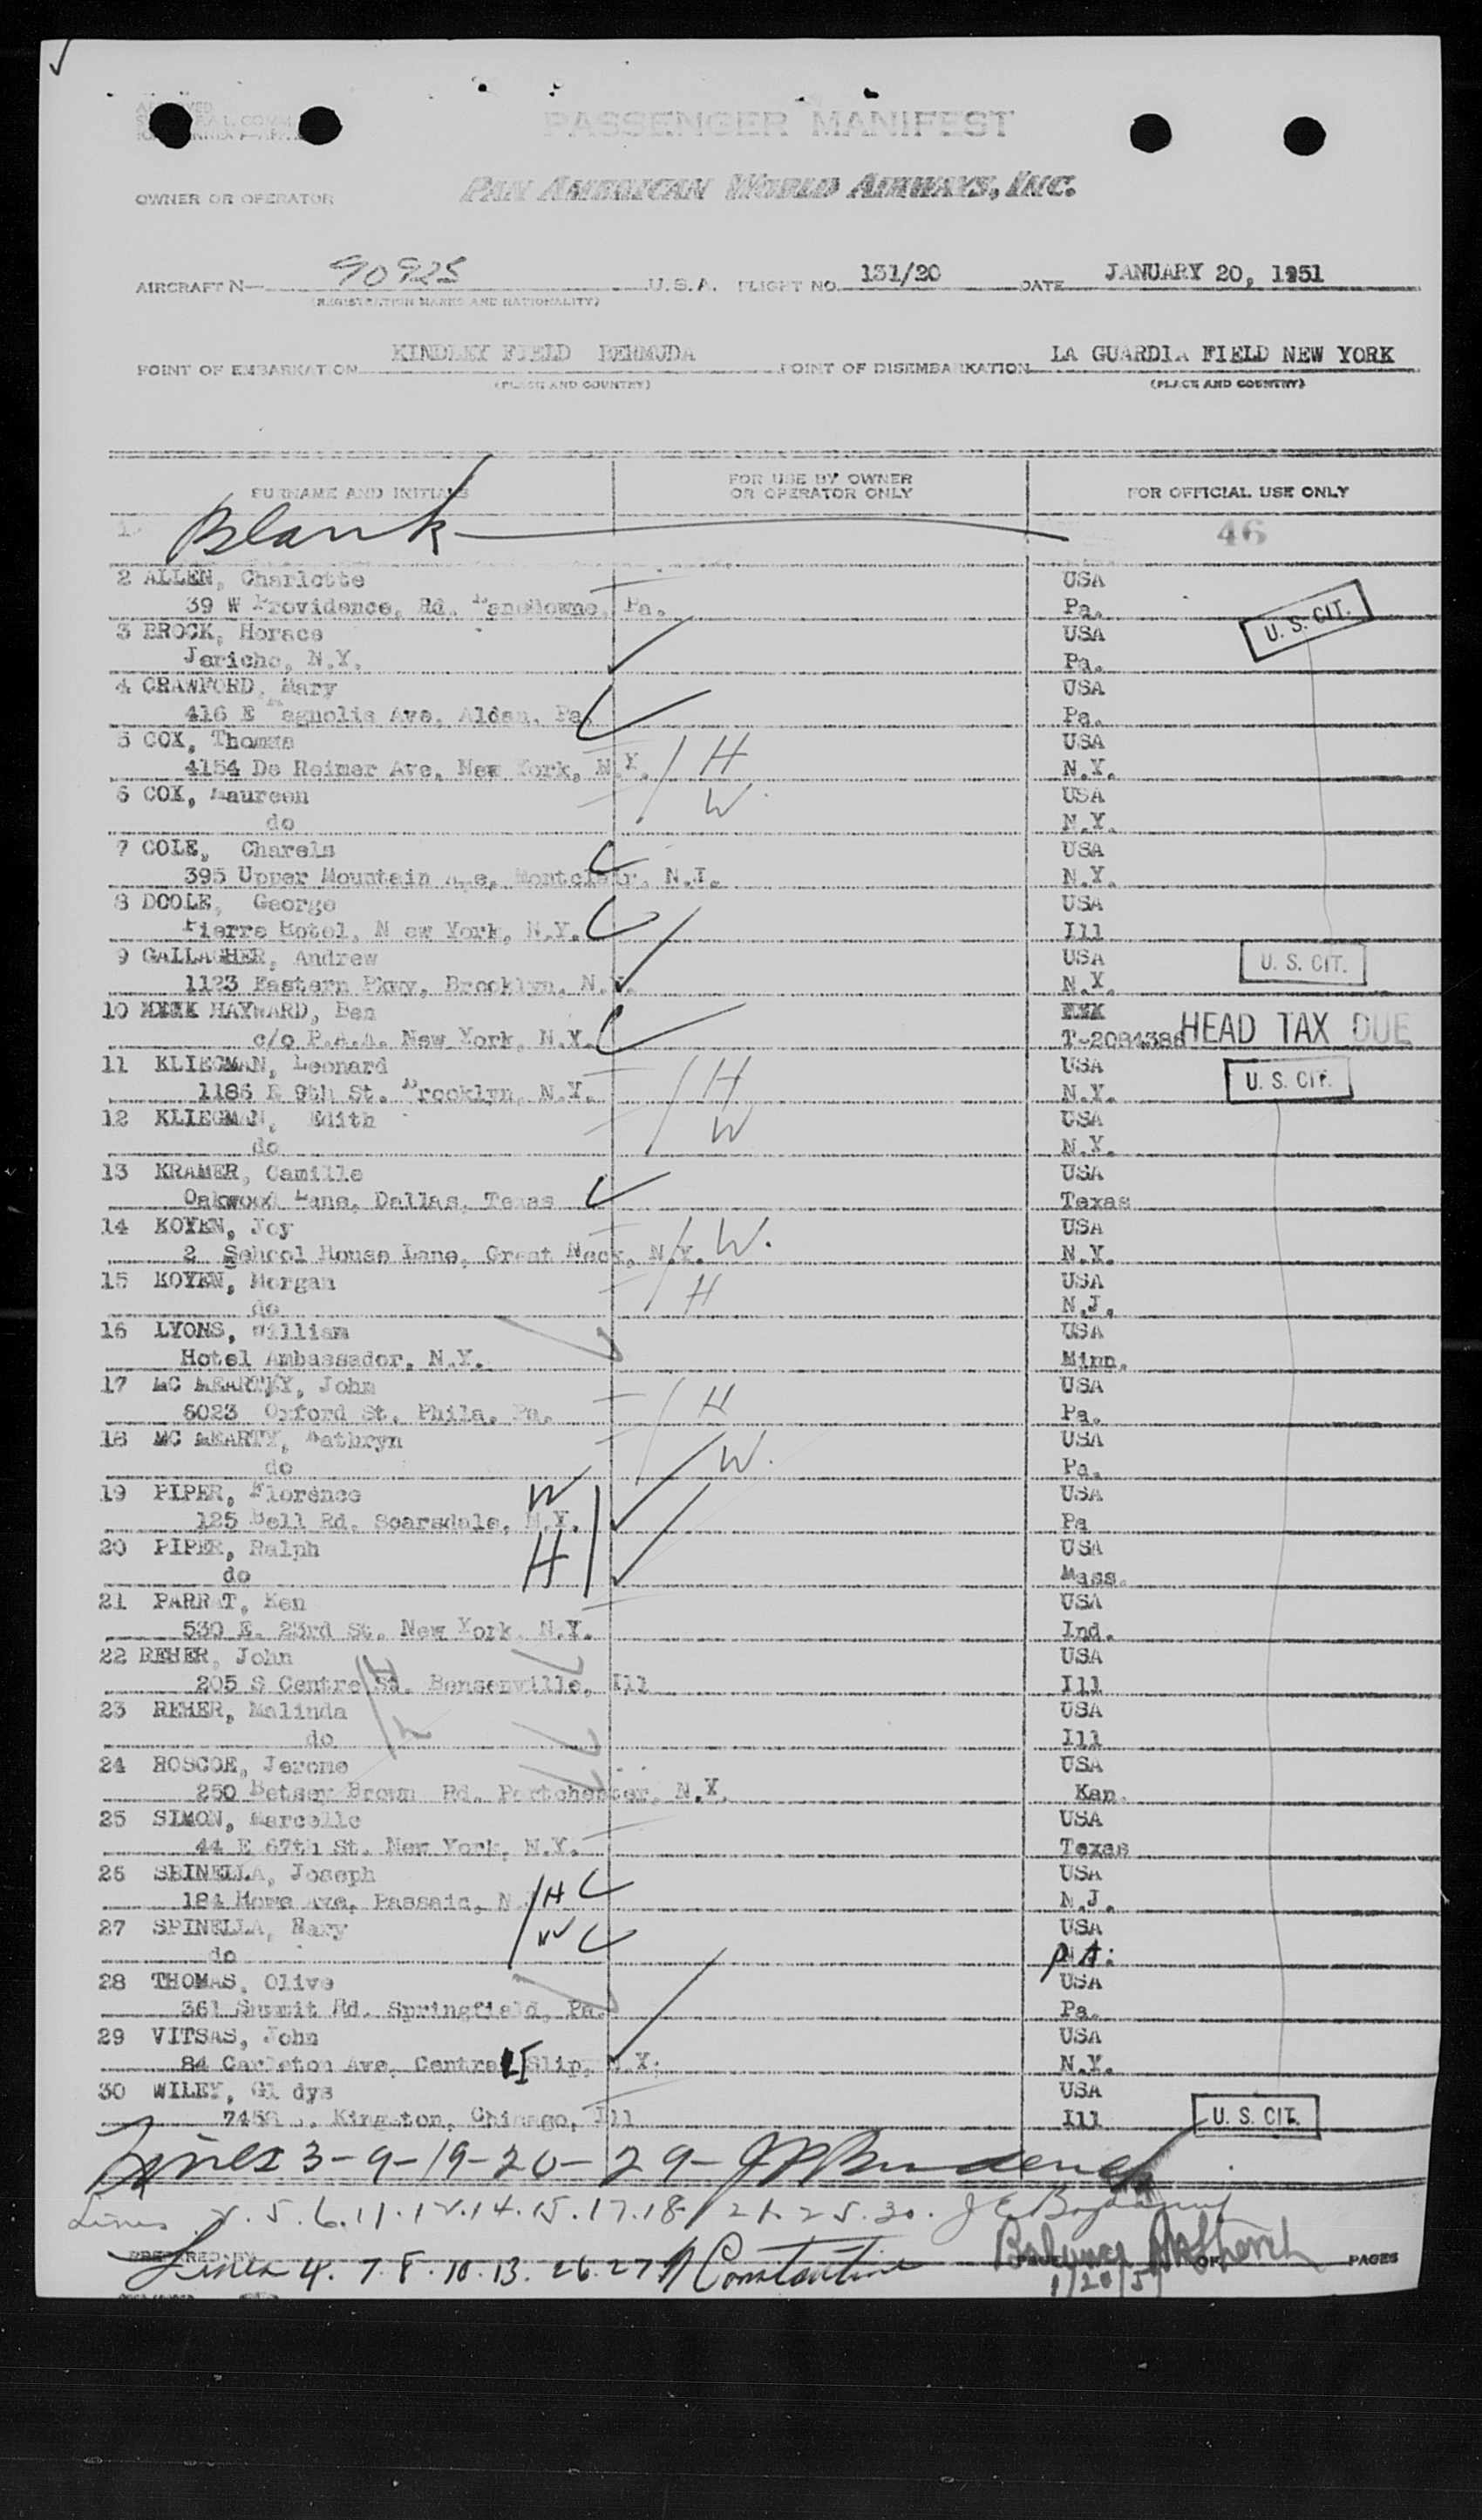 PASSENGER MANIFEST
OWNER OR OPERATOR PAN AMERICAN WORLD AIRWAYS, INC.
AIRCRAFT N— 90925 U.S.A. FLIGHT NO. 131/20 DATE JANUARY 20, 1951
(REGISTRATION MARKS AND NATIONALITY)
POINT OF EMBARKATION KINDLEY FIELD BERMUDA POINT OF DISEMBARKATION LA GUARDIA FIELD NEW YORK
(PLACE AND COUNTRY) (PLACE AND COUNTRY)
SURNAME AND INITIALS FOR USE BY OWNER OR OPERATOR ONLY FOR OFFICIAL USE ONLY
1 Blank 46
2 ALLEN, Charlotte USA
39 W Providence, Rd. Pa. Pa. U. S. CIT.
3 BROCK, Horace USA
Jericho, N.Y. Pa.
4 CRAWFORD, Mary USA
416 E Magnolia Ave. Aldan, Pa. Pa.
5 COX, Thomas USA
4154 De Reimer Ave, New York, N.Y. H N.Y.
6 COX, Maureen USA
do W N.Y.
7 COLE, Charels USA
395 Upper Mountain Montclair, N.J. N.Y.
8 DOOLE, George USA
Pierre Hotel, N ew York, N.Y. Ill
9 GALLAGHER, Andrew USA
1123 Eastern Pkwy, Brooklyn, N.Y. N.Y. U. S. CIT.
10 HAYWARD, Ben
c/o P.A.A. New York, N.Y. T-2084386 HEAD TAX DUE
11 KLIEGMAN, Leonard USA
1186 E 9th St. Brooklyn, N.Y. H N.Y. U. S. CIT.
12 KLIEGMAN, Edith USA
do W N.Y.
13 KRAMER, Camille USA
Oakwood Lane, Dallas, Texas Texas
14 KOYEN, Joy USA
2 School House Lane, Great Neck, N.Y. W. N.Y.
15 KOYEN, Morgan USA
do H N.J.
16 LYONS, William USA
Hotel Ambassador, N.Y. Minn.
17 John USA
6023 Oxford St. Phila, Pa. H Pa.
18 Kathryn USA
do W. Pa.
19 PIPER, Florence W USA
125 Bell Rd. Scarsdale, N.Y. Pa
20 PIPER, Ralph H USA
do Mass.
21 Ken USA
530 E. 23rd St. New York, N.Y. Ind.
22 REHER, John USA
205 S Centre St. Bensenville, Ill Ill
23 REHER, Malinda USA
do Ill
24 ROSCOE, Jerome USA
250 Betsey Brown Rd. Portchester, N.Y. Kan.
25 SIMON, Marcelle USA
44 E 67th St. New York, N.Y. Texas
26 SPINELLA, Joseph USA
184 Howe Ave, Passaic, N H N.J.
27 SPINELLA, Mary USA
do W PA.
28 THOMAS, Olive USA
361 Summit Rd. Springfield, Pa. Pa.
29 VITSAS, John USA
84 Carleton Ave, Central Slip, N.Y. N.Y.
30 WILEY, Gl dys USA
Kingston, Chicago, Ill Ill U. S. CIT.
Lines 3-9-19-20-29-
Lines 2.5.6.11.12.14.15.17.18 21.25.30.
Lines 4.7.8.10.13.26.27 Constantine
PREPARED BY OF PAGES
1/20/51